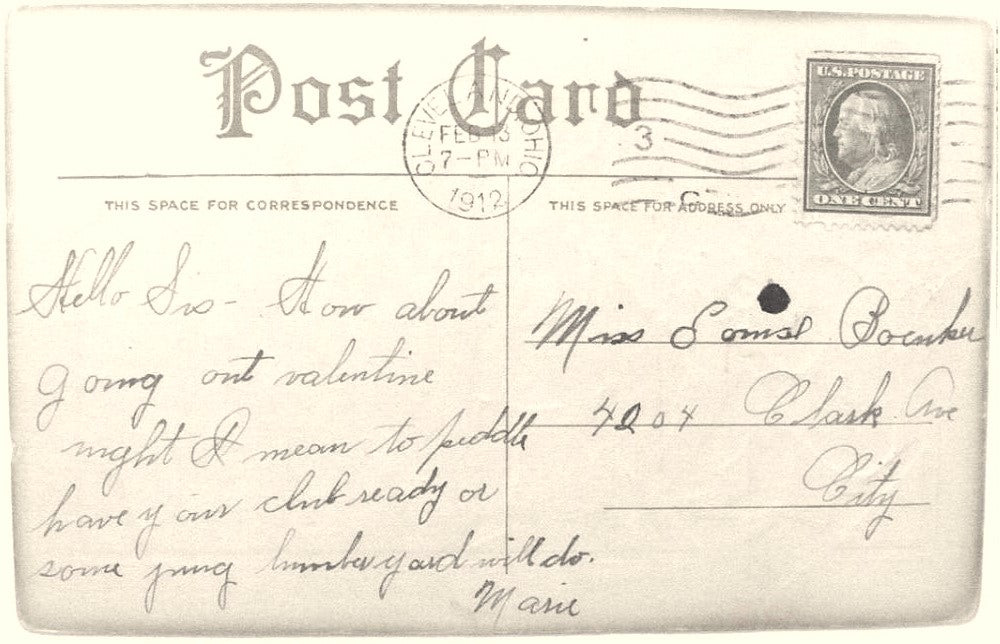 Post Card
CLEVELAND, OHIO
FEB 13
7-PM
1912
3
C
U.S. POSTAGE
ONE CENT
THIS SPACE FOR CORRESPONDENCE
THIS SPACE FOR ADDRESS ONLY
Hello Sis - How about
going out valentine
night I mean to peddle
have your club ready or
some lumber yard will do.
Marie
Miss Louise Boenker
4204 Clark Ave
City